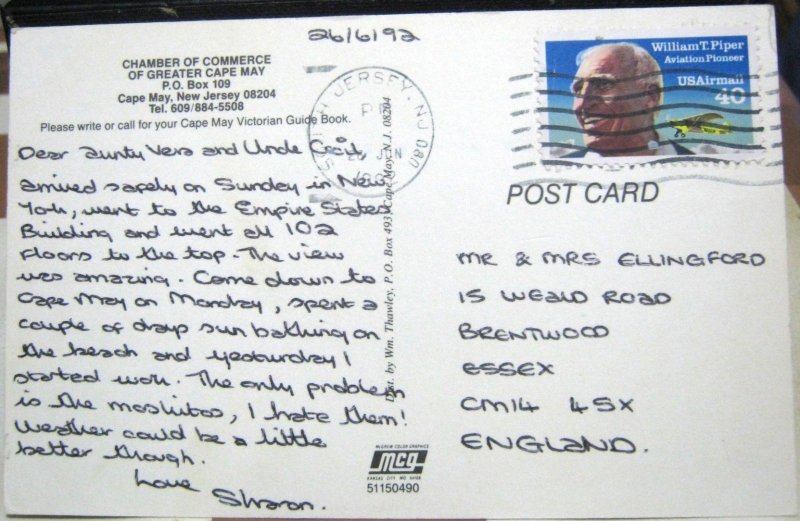 26/6/92
CHAMBER OF COMMERCE
OF GREATER CAPE MAY
P.O. Box 109
Cape May, New Jersey 08204
Tel. 609/884-5508
Please write or call for your Cape May Victorian Guide Book.
Dear Aunty Vera and Uncle Cecil,
arrived safely on Sunday in New
York, went to the Empire States
Building and went all 102
floors to the top. The view
was amazing. Came down to
Cape May on Monday, spent a
couple of days sun bathing on
the beach and yesturday I
started work. The only problem
is the moskitos, I hate them!
Weather could be a little
better though.
Love
Sharon.
Dist. by Wm. Thawley, P.O. Box 493, Cape May, N.J. 08204
McGREW COLOR GRAPHICS
mcg
KANSAS CITY MO 64108
51150490
SOUTH JERSEY, NJ 080
JUN
William T. Piper
Aviation Pioneer
USAirmail
40
POST CARD
MR & MRS ELLINGFORD
15 WEALD ROAD
BRENTWOOD
ESSEX
CM14 4SX
ENGLAND.